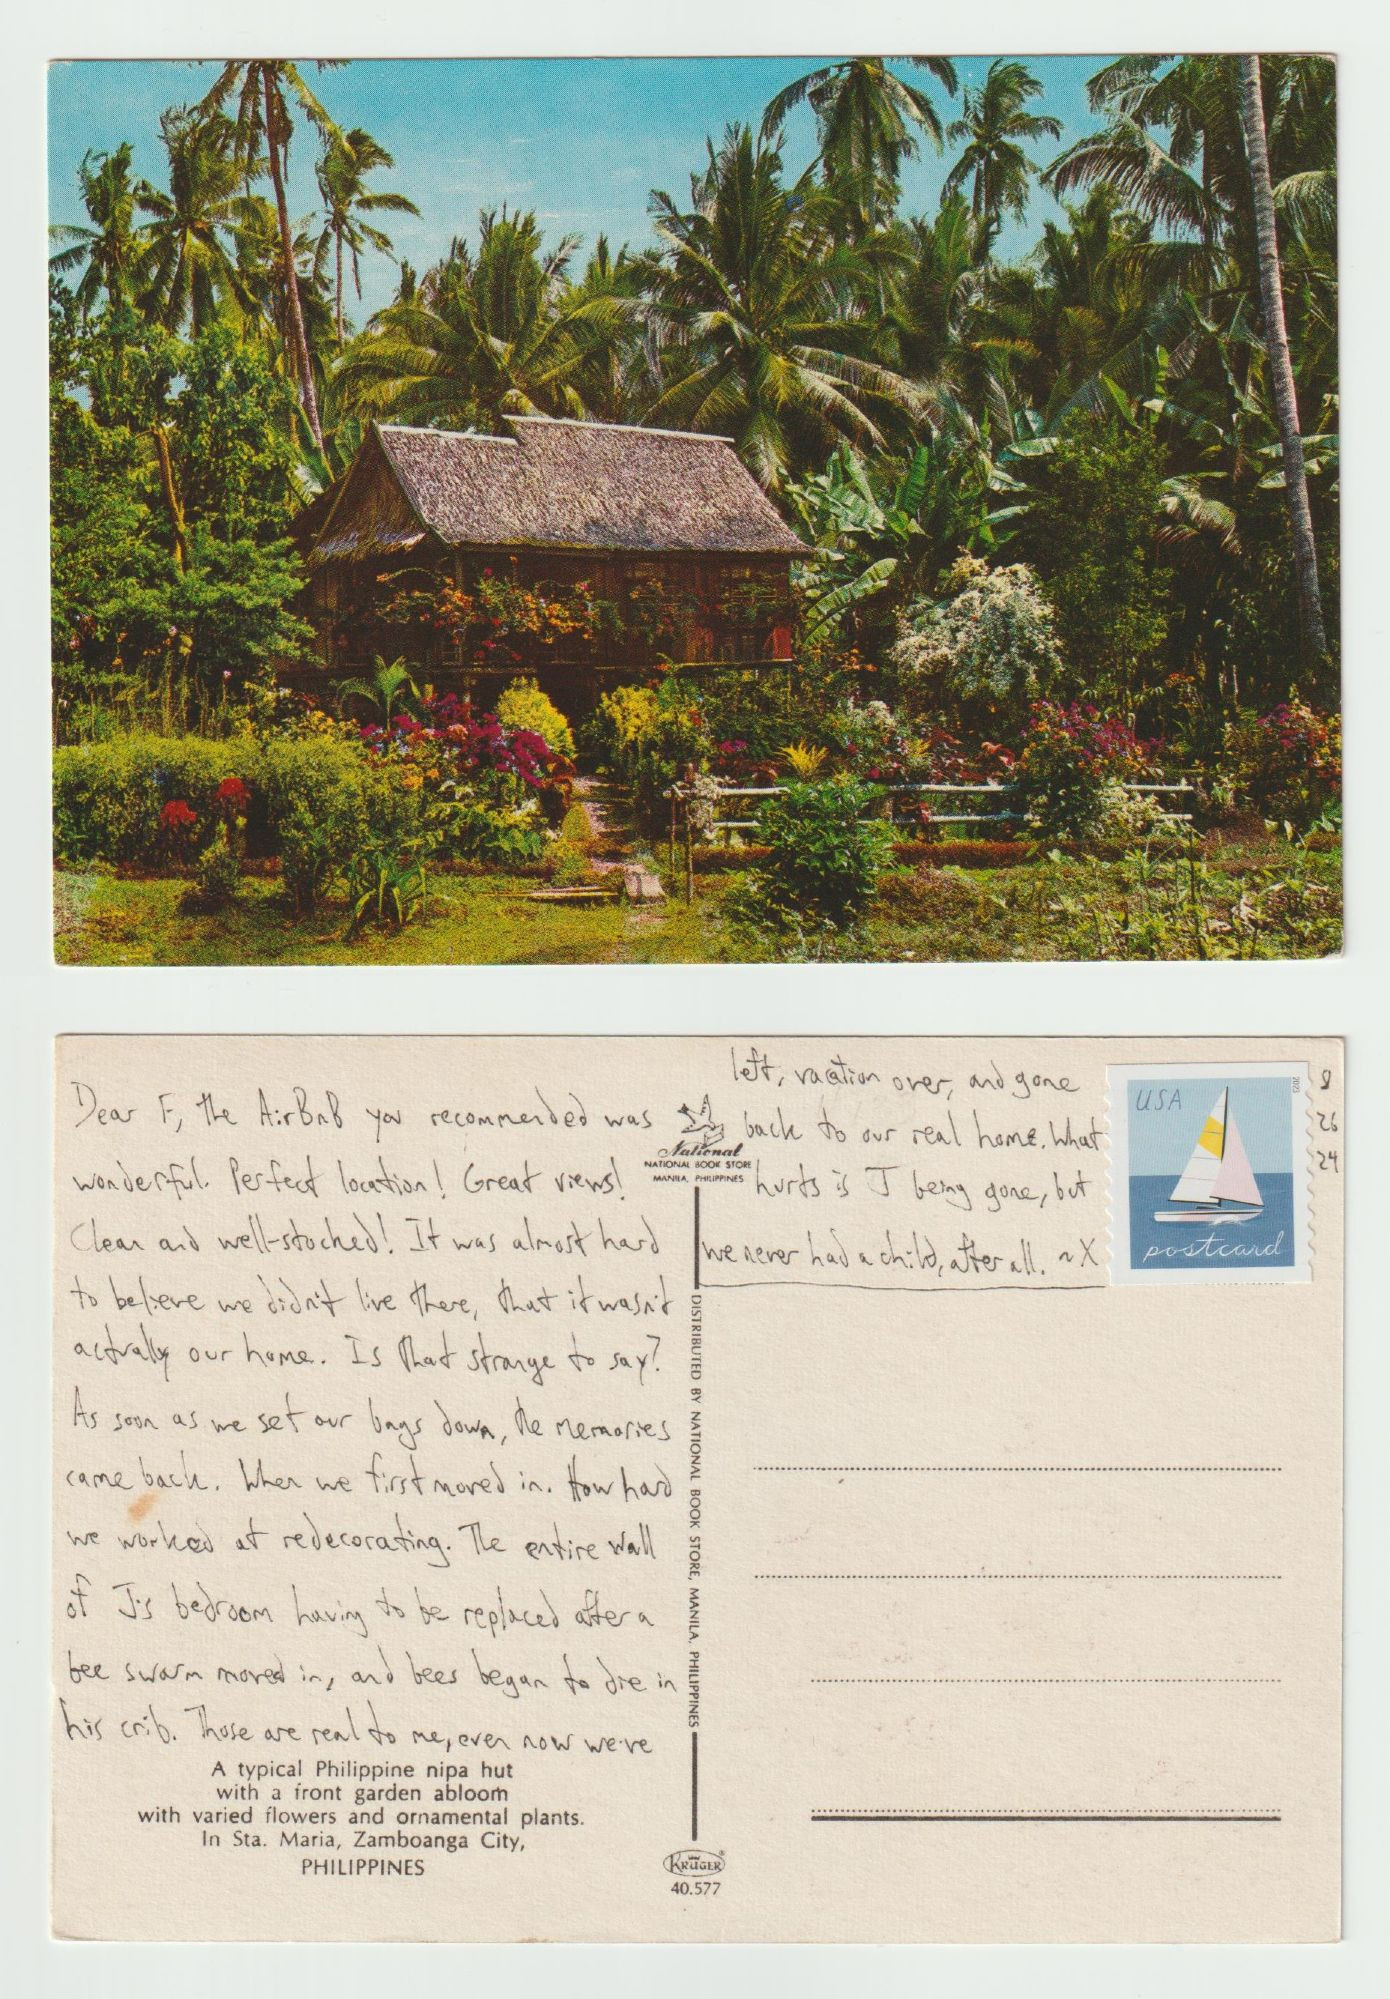 Dear F, the AirBnB you recommended was
wonderful. Perfect location! Great views!
Clean and well-stocked! It was almost hard
to believe we didn't live there, that it wasn't
actually our home. Is that strange to say?
As soon as we set our bags down, the memories
came back. When we first moved in. How hard
we worked at redecorating. The entire wall
of J's bedroom having to be replaced after a
bee swarm moved in, and bees began to die in
his crib. Those are real to me, even now we've
left, vacation over, and gone
back to our real home. What
hurts is J being gone, but
we never had a child, after all. ~X
8
26
24
USA
2023
postcard
National
NATIONAL BOOK STORE
MANILA, PHILIPPINES
DISTRIBUTED BY NATIONAL BOOK STORE, MANILA, PHILIPPINES
A typical Philippine nipa hut
with a front garden abloom
with varied flowers and ornamental plants.
In Sta. Maria, Zamboanga City,
PHILIPPINES
KRÜGER
40.577